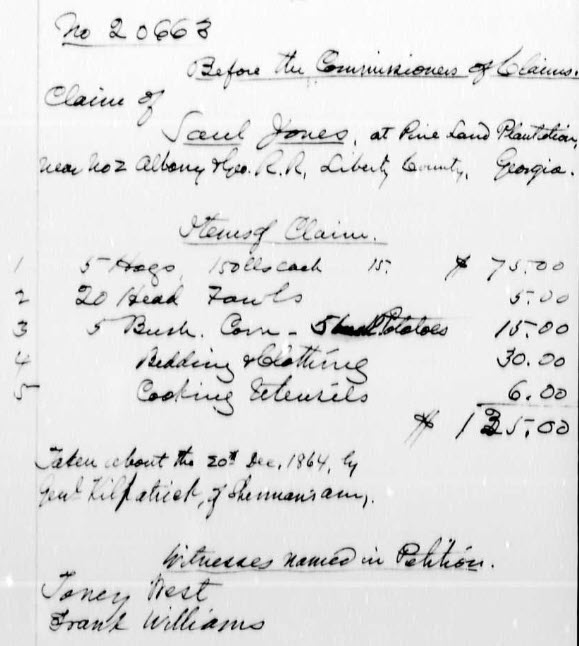 No 20663
Before the Commissioners of Claims.
Claim of
Saul Jones, at Pine Land Plantation,
near No 2 Albany & Geo. R.R, Liberty County, Georgia.
Items of Claim.
1 5 Hogs, 150 lbs each 15. $ 75.00
2 20 Head Fowls 5.00
3 5 Bush. Corn - 5 Potatoes 15.00
4 Bedding & Clothing 30.00
5 Cooking Utensils 6.00
$ 125.00
Taken about the 20th Dec, 1864, by
Genl Kilpatrick, of Shermans army.
Witnesses named in Petition.
Toney West
Frank Williams